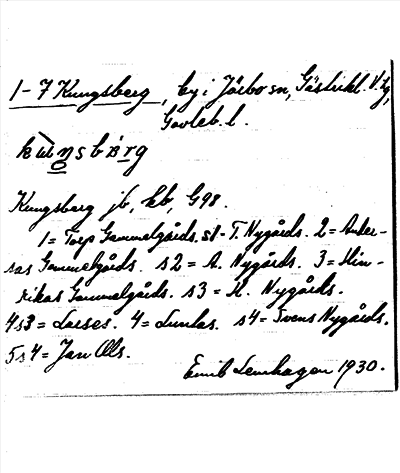 1-7 Kungsberg, by i Järbo sn, Gästrikl. V. tg,
Gävleb. l.
Kungsberg jb, kb, G98.
1 = Torp Gammelgårds. s1 - T. Nygårds. 2 = Ander-
sas Gammelgårds. s2 = A. Nygårds. 3 = Hin-
rikas Gammelgårds. s3 = H. Nygårds.
4s3 = Larses. 4 = Lundas. s4 = Svens Nygårds.
5s4 = Jan Ols.
Emil Lenhagen 1930.